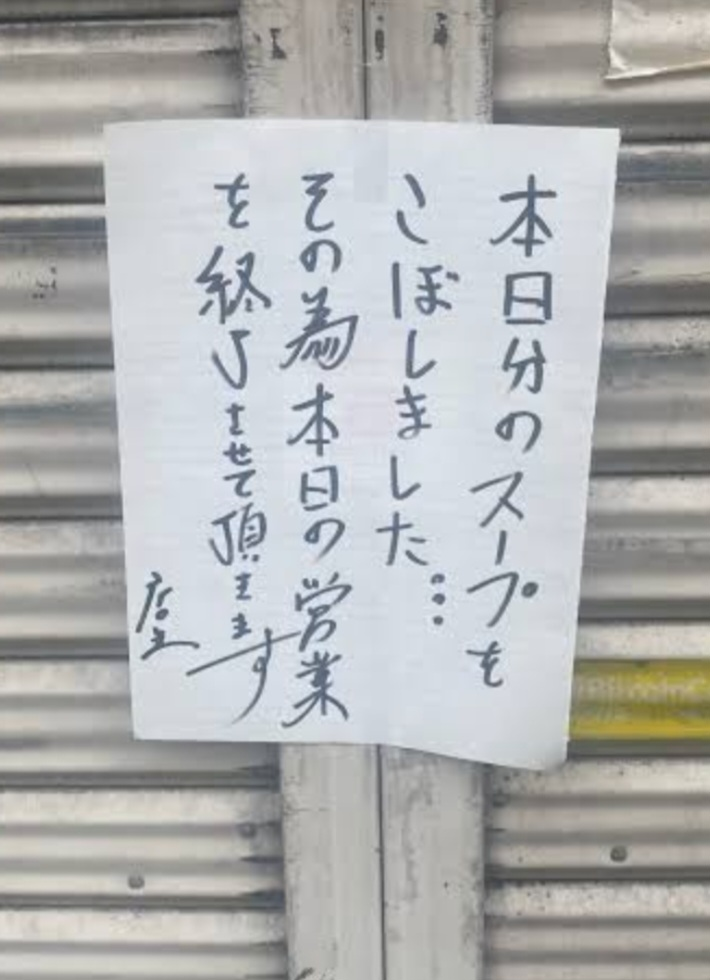 本日分のスープを
こぼしました…
その為本日の営業
を終了させて頂きます
店主